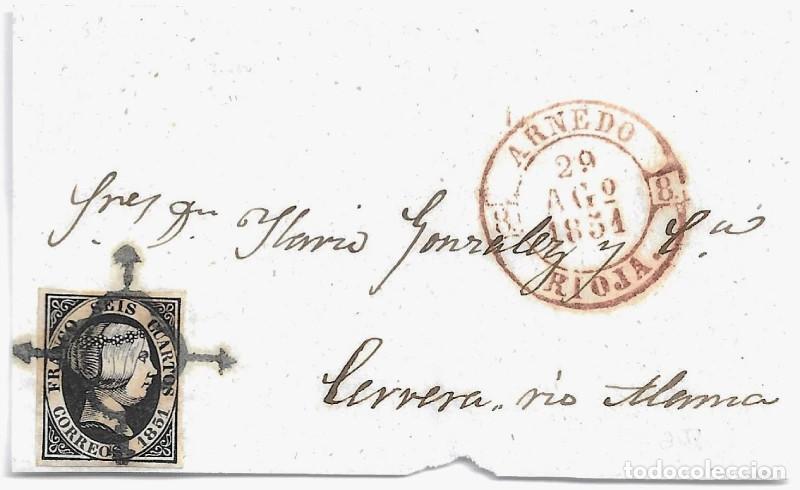 ARNEDO
29
AGº
1851
RIOJA
8
8
Sres Dn Ilario Gonzalez y Cª
FRANCO SEIS CUARTOS
CORREOS 1851
Cervera rio Alama
todocoleccion